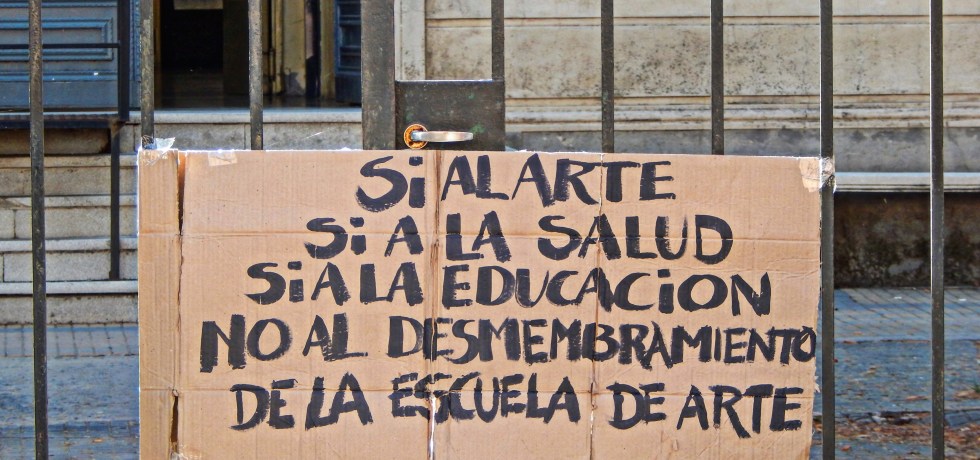 Si AL ARTE
Si A LA SALUD
Si A LA EDUCACiON
NO AL DESMEMBRAMIENTO
DE LA ESCUELA DE ARTE